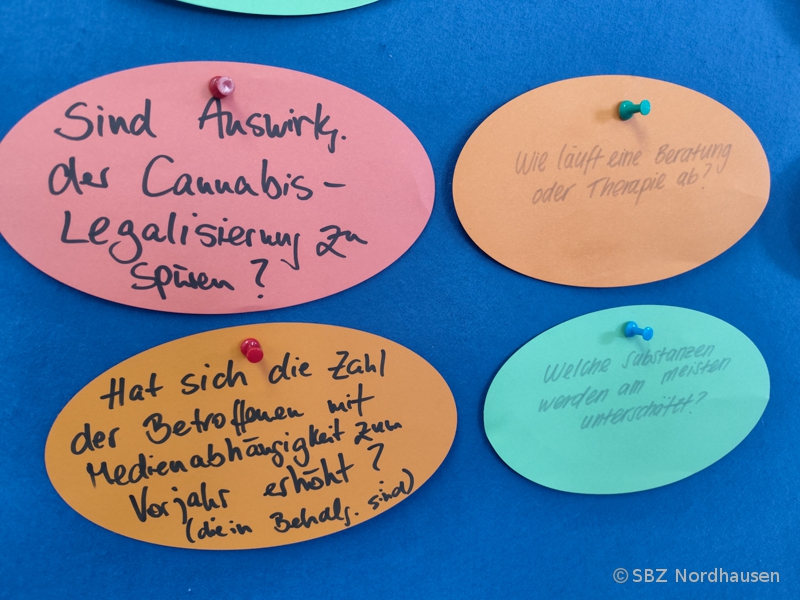 Sind Auswirk.
der Cannabis-
Legalisierung zu
spüren?
Wie läuft eine Beratung
oder Therapie ab?
Hat sich die Zahl
der Betroffenen mit
Medienabhängigkeit zum
Vorjahr erhöht?
(die in Behalg. sind)
Welche Substanzen
werden am meisten
unterschätzt?
©SBZ Nordhausen